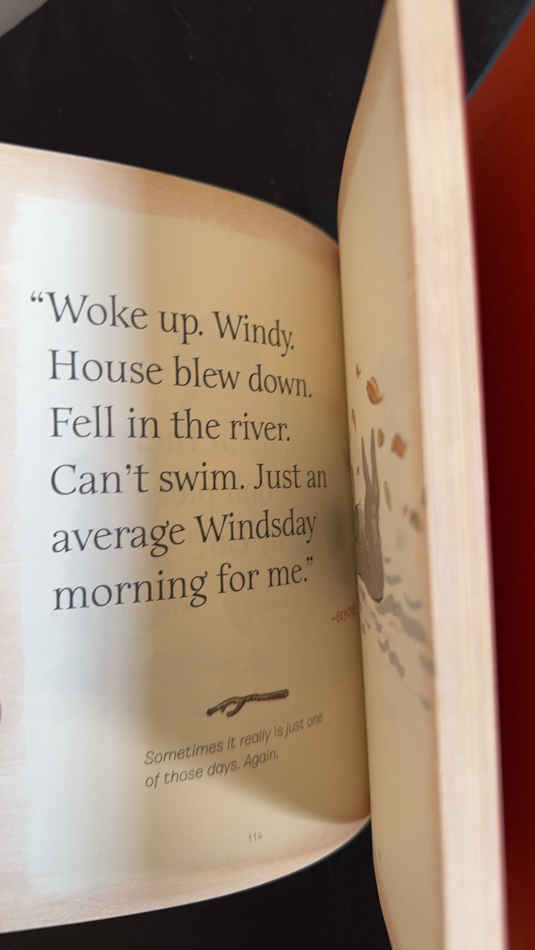 “Woke up. Windy.
House blew down.
Fell in the river.
Can’t swim. Just an
average Windsday
morning for me.”
Sometimes it really is just one
of those days. Again.
114